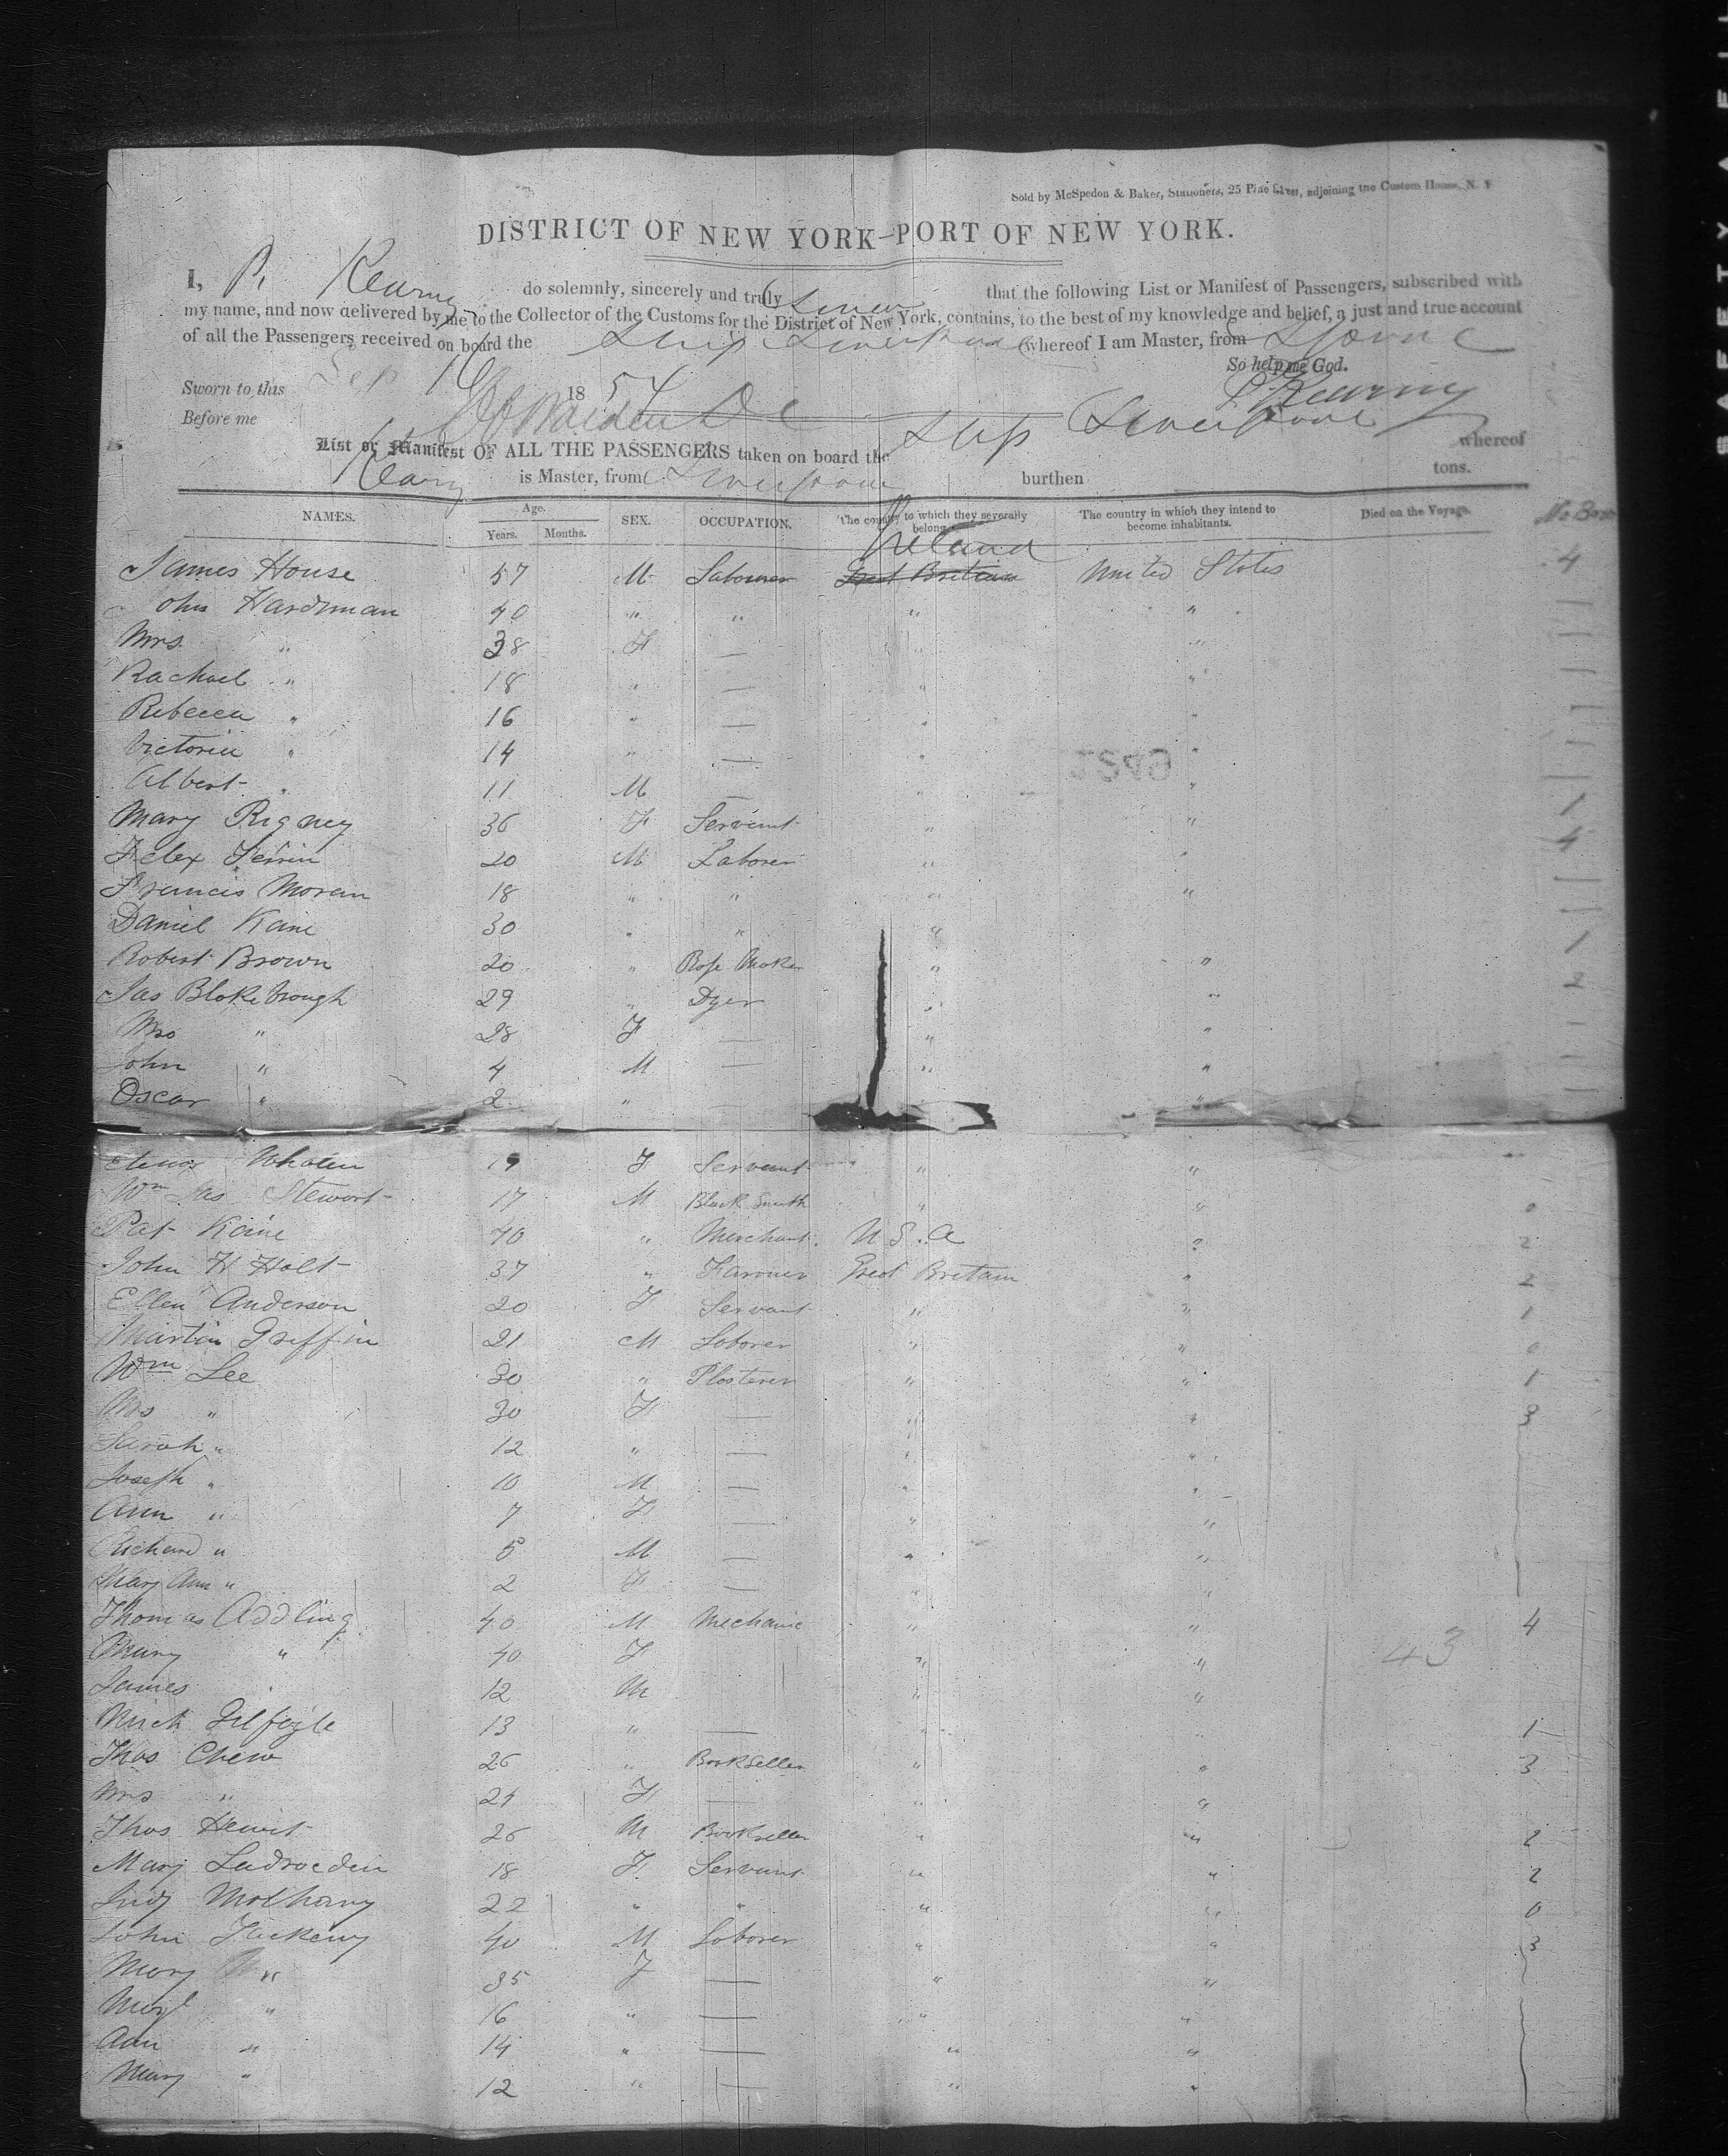 Sold by McSpedon & Baker, Stationers, 25 Pine Street, adjoining the Custom House, N. Y.
DISTRICT OF NEW YORK—PORT OF NEW YORK.
I, P. Kearny do solemnly, sincerely and truly Swear that the following List or Manifest of Passengers, subscribed with
my name, and now delivered by me to the Collector of the Customs for the District of New York, contains, to the best of my knowledge and belief, a just and true account
of all the Passengers received on board the Ship Liverpool whereof I am Master, from
So help me God.
Sworn to this Sep 16 1854 P Kearny
Before me
List or Manifest OF ALL THE PASSENGERS taken on board the Ship Liverpool whereof
Kearny is Master, from Liverpool burthen tons.
NAMES. Age. Years. Months. SEX. OCCUPATION. The country to which they severally belong. The country in which they intend to become inhabitants. Died on the Voyage.
Ireland
James House 57 M Labourer Great Britain United States 4
John Hardman 40 " " " "
Mrs " 38 F — " "
Rachael " 18 " — " "
Rebecca " 16 " — " "
Victoria " 14 " — " "
Albert " 11 M — " "
Mary Rigney 36 F Servant " " 1
Felex 20 M Laborer " " 4
Francis Moran 18 " " " "
Daniel Kane 30 " " "
Robert Brown 20 " Rope Maker " " 1
Jas Blakebrough 29 " Dyer " " 2
Mrs " 28 F — " "
John " 4 M — " "
Oscar " 2 " — "
Whalen 19 F Servant " "
Wm Jas Stewart 17 M Black Smith " " 0
Pat Kane 40 " Merchant U S. A " 2
John H Holt 37 " Farmer Great Britain " 2
Ellen Anderson 20 F Servant " " 1
Martin Griffin 21 M Laborer " " 0
Wm Lee 30 " Plasterer " " 1
Mrs " 30 F — " " 3
Sarah " 12 " — " "
Joseph " 10 M — " "
Ann " 7 F — " "
Richard " 5 M — " "
Mary Ann " 2 F — " "
Thomas Addling 40 M Mechanic " " 4
Mary " 40 F " " 43
James " 12 M " "
Mich Gilfoyle 13 " — " " 1
Thos Chew 26 " Bookseller " " 3
Mrs " 24 F — " "
Thos Hewit 26 M Bookseller " " 2
Mary 18 F Servant " " 2
Judy 22 " " " " 0
John 40 M Laborer " " 3
Mary Mrs 35 F — " "
Margt " 16 " — " "
Ann " 14 " — " "
Mary " 12 " — " "